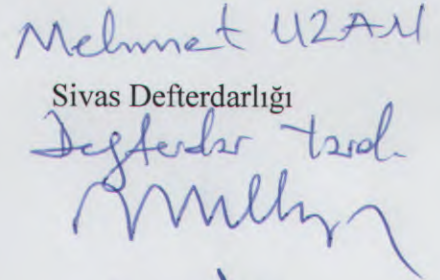 Mehmet UZAN
Sivas Defterdarlığı
Defterdar Yard.